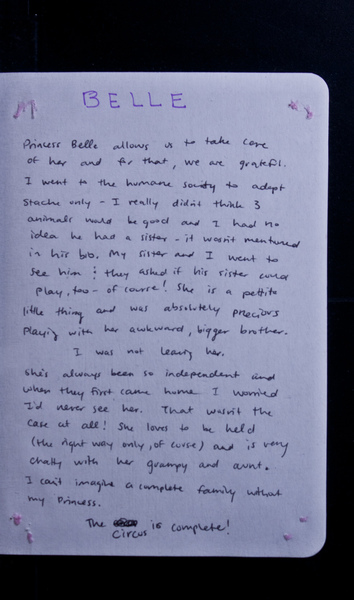 BELLE
Princess Belle allows us to take care
of her and for that, we are grateful.
I went to the humane society to adopt
Stache only - I really didn't think 3
animals would be good and I had no
idea he had a sister - it wasn't mentioned
in his bio. My sister and I went to
see him & they asked if his sister could
play, too - of course! She is a pettite
little thing and was absolutely precious
playing with her awkward, bigger brother.
I was not leaving her.
She's always been so independent and
when they first came home I worried
I'd never see her. That wasn't the
case at all! She loves to be held
(the right way only, of curse) and is very
chatty with her grampy and aunt.
I can't imagine a complete family without
my princess.
The is complete!
Circus